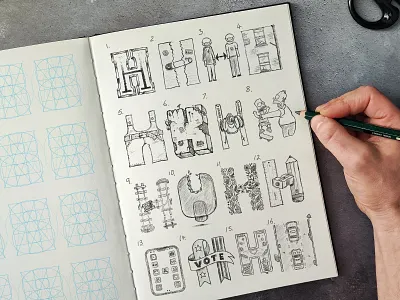 1. 2. 3. 4.
5. 6. 7. 8.
9. 10. 11. 12.
13. 14. 15. 16.
VOTE